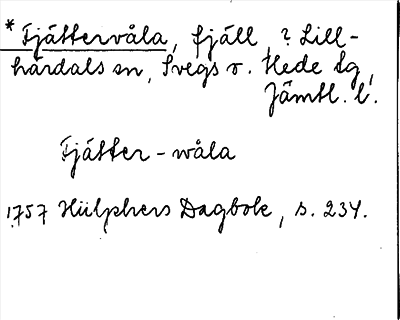 * Fjåttervåla, fjäll, ? Lill-
härdals sn, Svegs o. Hede tg,
Jämtl. l.
Fjåtter-wåla
1757 Hülphers Dagbok, s. 234.